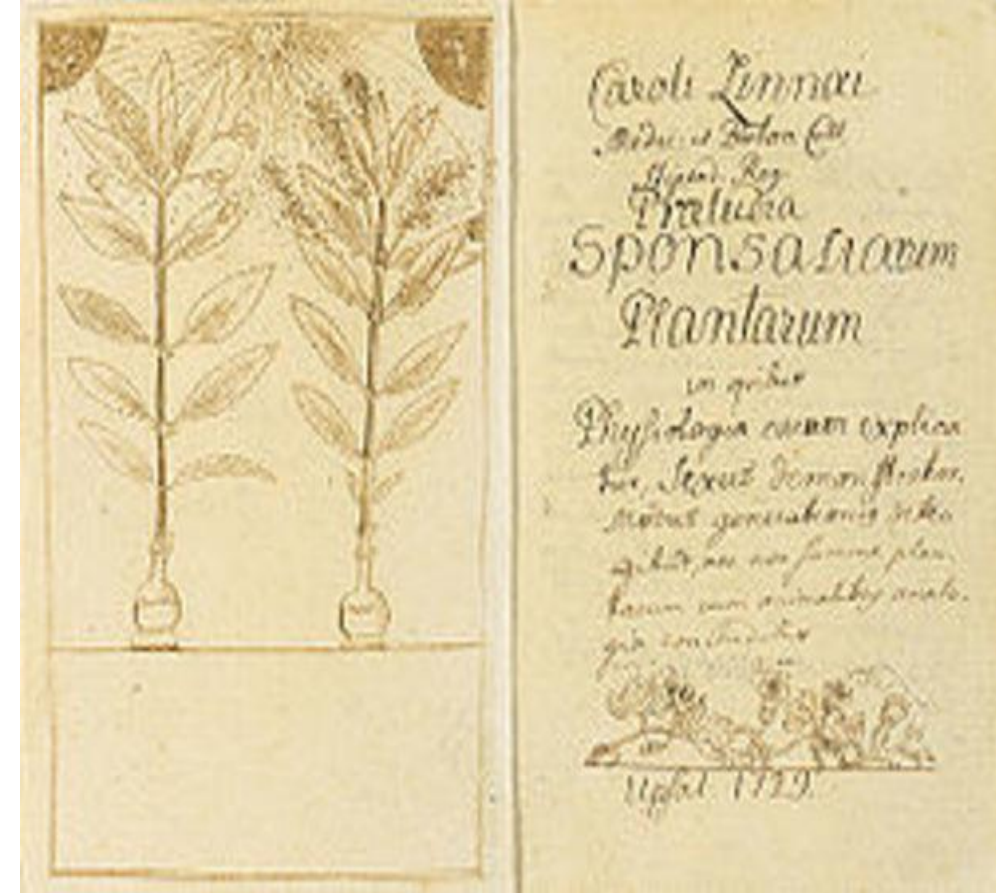 Caroli Linnæi
Medic: et Botan Cult
Stipend. Reg.
Præludia
Sponsaliarum
Plantarum
in quibus
Physiologia earum explica
tur, Sexus demonstratur,
Modus generationis dete
gitur, nec non summa plan-
tarum cum animalibus analo-
gia concluditur
Upsal. 1729.